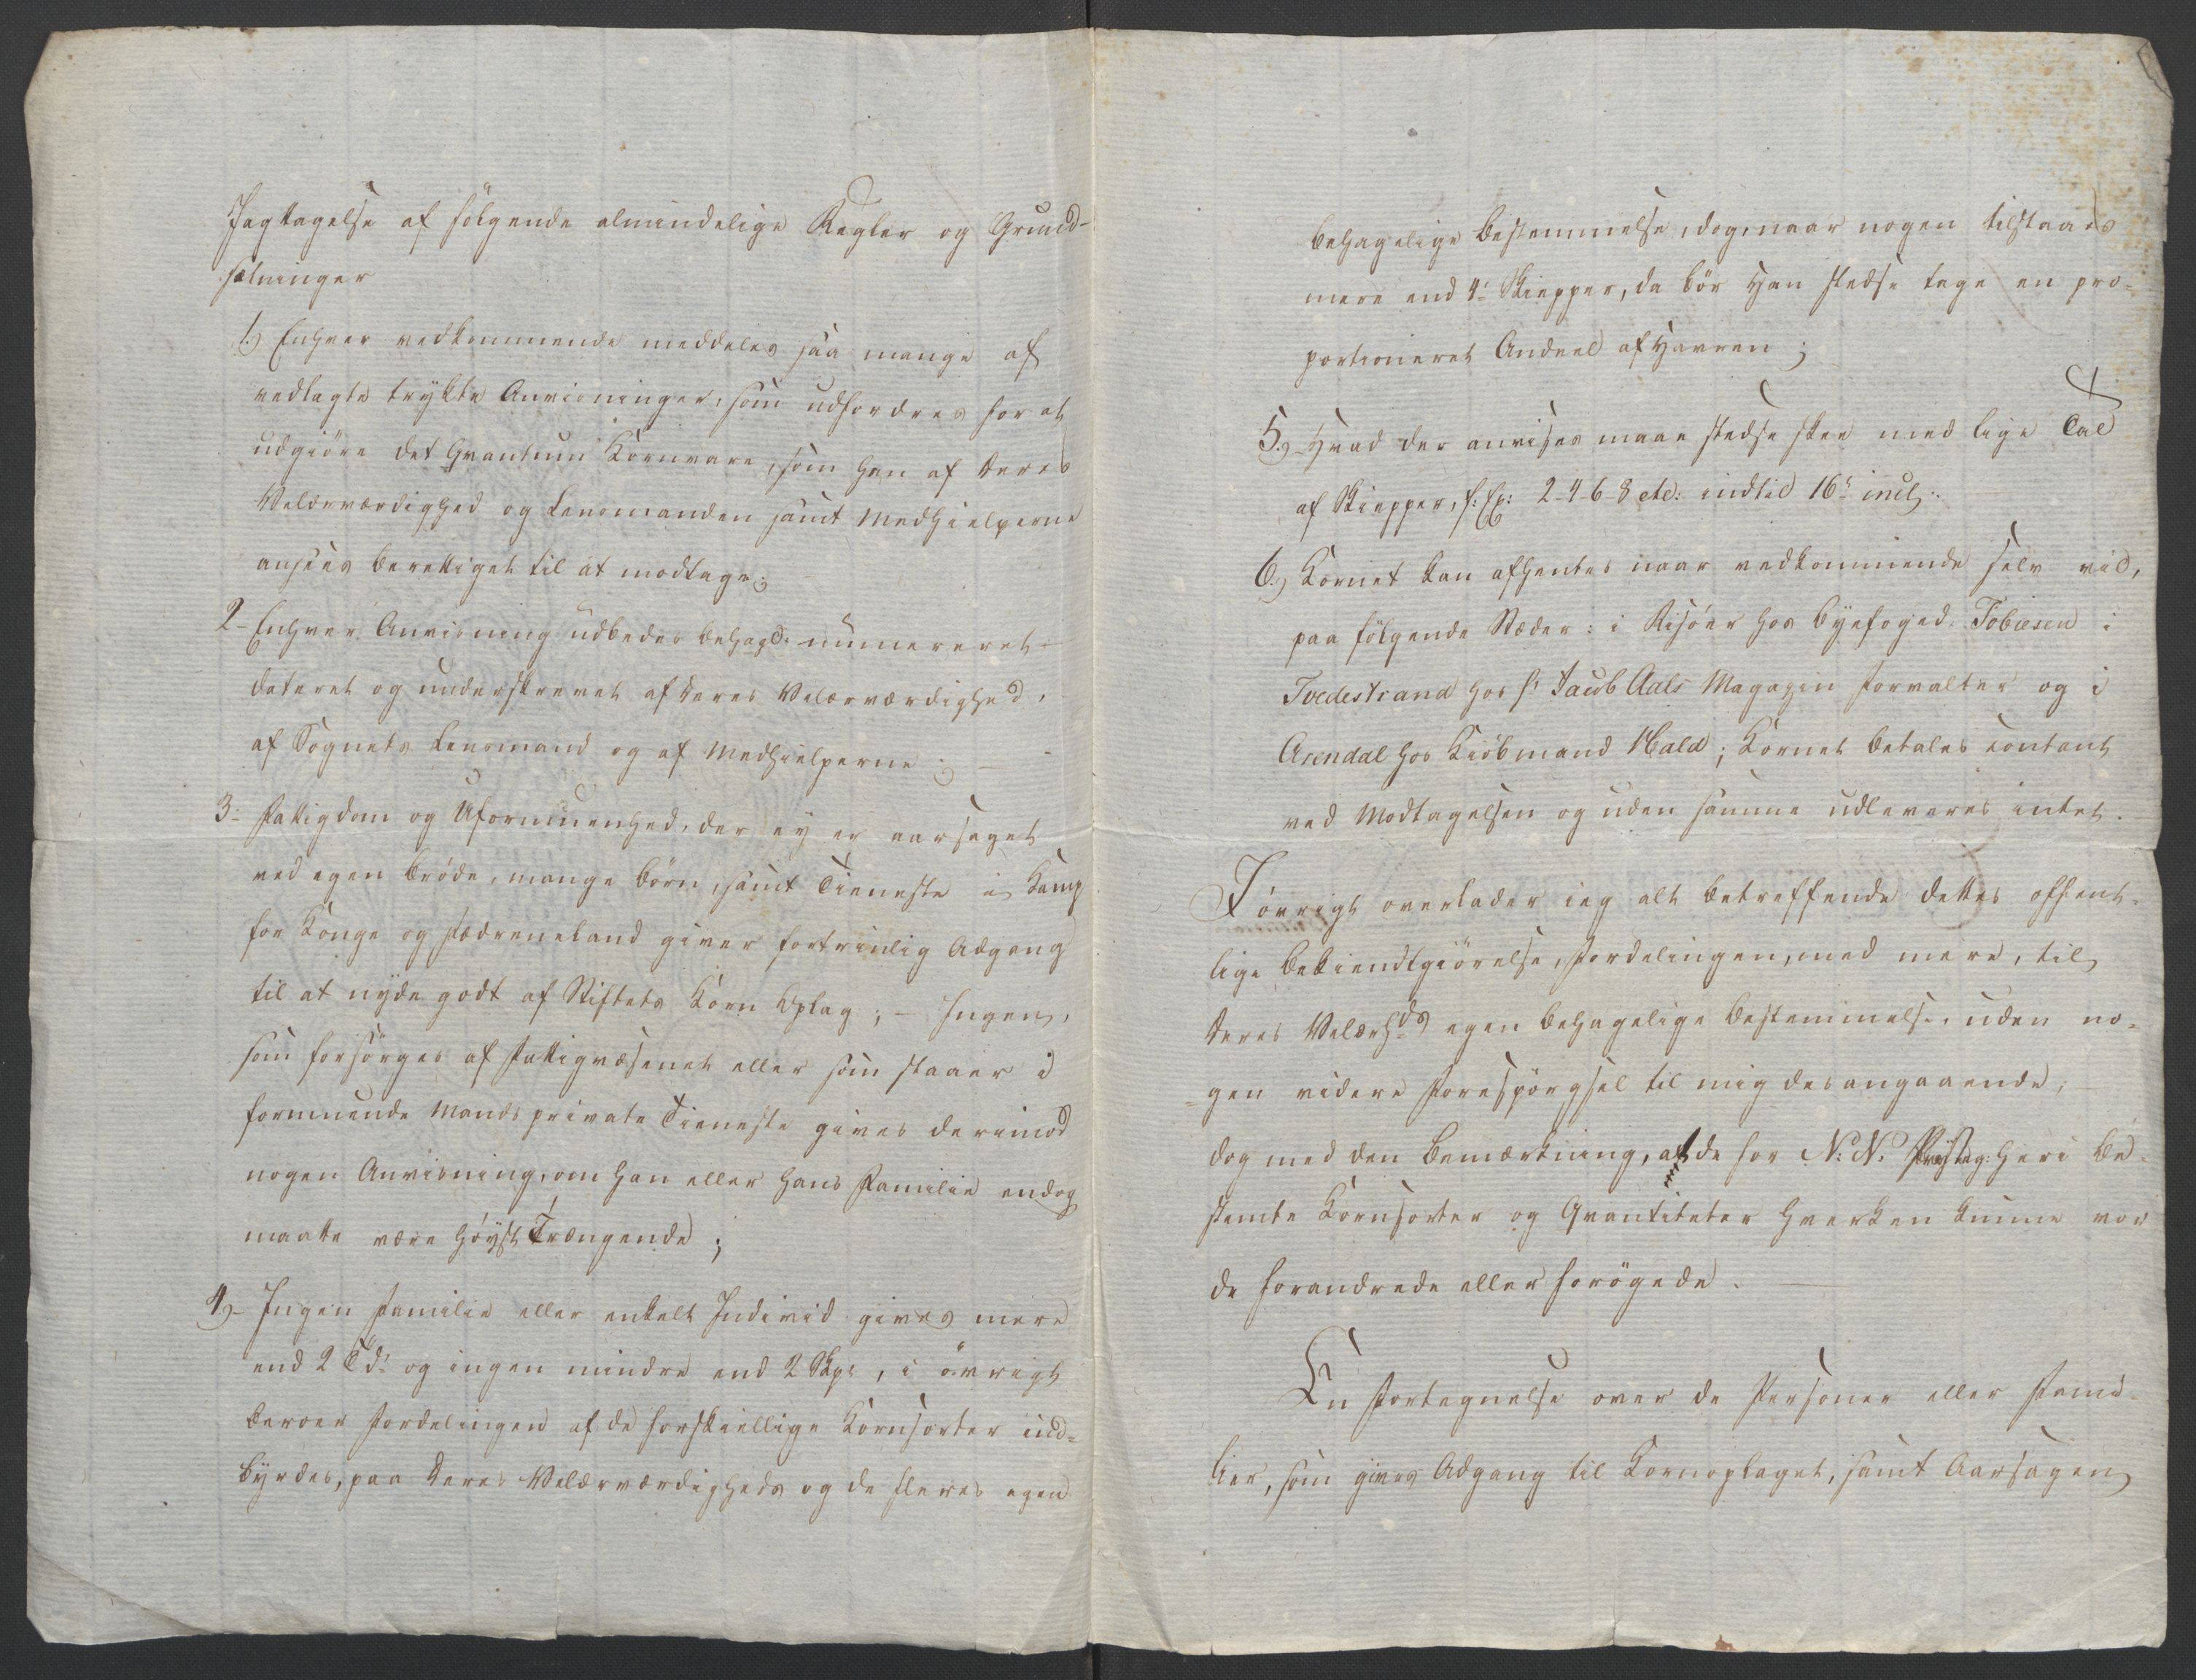 Jagttagelse af følgende almindelige Regler og Grund-
sætninger
1.) Enhver vedkommende meddeles saa mange af
vedlagte trykte Anvisninger, som udfordres for at
udgiöre det Qvantum Kornvare, som han af Deres
Velærværdighed og Lensmanden samt Medhielperne
ansees berettiget til at modtage;
2- Enhver Anvisning udbedes behagel: numereret-
dateret og underskrevet af Deres Velærværdighed,
af Sognets Lensmand og af Medhielperne; —
3- Fattigdom og Uformuenhed, der ey er aarsaget
ved egen Bröde, mange Börn, samt Tieneste i Kamp
for Konge og Fædreneland giver fortrinlig Adgang
til at nyde godt af Stiftets Korn Oplag; — Ingen,
som forsörges af Fattigvæsenet eller som staaer i
formuende Mands private Tieneste gives derimod
nogen Anvisning, om han eller hans Familie endog
maatte være höyst Trængende;
4)- Ingen Familie eller enkelt Individ gives mere
end 2 Tdr og ingen mindre end 2 Skpr, i övrigt
beroer Fordelingen af de forskiellige Kornsorter ind-
byrdes, paa Deres Velærværdigheds og de fleres egen
behagelige Bestemmelse, dog, naar nogen tilstaaes
mere end 4r Skiepper, da bör Han stedse tage en pro-
portioneret Andeel af Havren;
5) Hvad der anvises maae stedse skee med lige Tal
af Skiepper, f: Ex: 2-4-6-8 etc: indtil 16r incl:
6) Kornet kan afhentes naar vedkommende selv vil,
paa fölgende Stæder: i Risöer hos Byefoged Tobiesen i
Tvedestrand hos Hr Jacob Aals Magazin Forvalter og i
Arendal hos Kiöbmand Hald; Kornet betales contant
ved Modtagelsen og uden samme udleveres intet.
I övrigt overlader jeg alt betreffende dettes offent-
lige Bekiendtgiörelse, Fordelingen, med mere, til
Deres Velærhds egen behagelige Bestemmelse, uden no-
gen videre Forespörgsel til mig desangaaende;
dog med den Bemærkning, at de for N: N: Præsteg: heri be-
stemte Kornsorter og Qvantiteter hverken kunne vor
de forandrede eller forögede. —
En Fortegnelse over de Personer eller Fami-
lier, som gives Adgang til Kornoplaget, samt Aarsagen